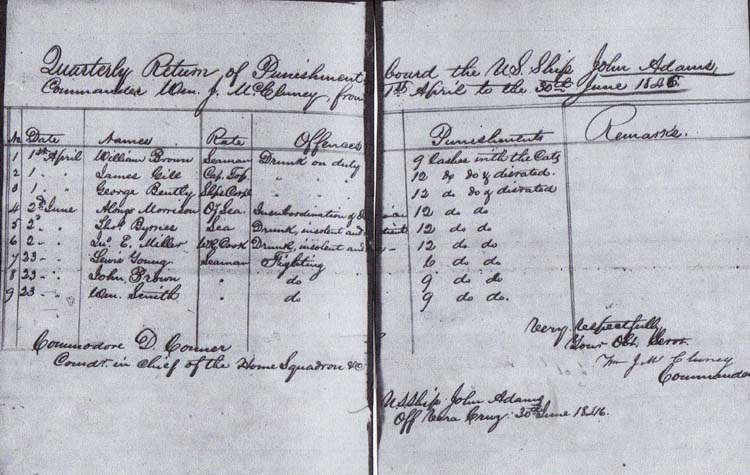 Quarterly Return of Punishment board the U.S. Ship John Adams
Commander Wm. J. McCluney from 1st April to the 30th June 1846.
No Date Names Rate Offences Punishments Remarks.
1 1st April William Brown Seaman Drunk on duty 9 Lashes with the Cats
2 1 " " James Gill Cap. Top " " 12 do do & disrated
3 1 " " George Bently Ship's Cook " " 12 do do & disrated
4 2d June Alonzo Morrison Oy Sea Insubordination & 12 do do
5 2d " Thos Byrnes Sea Drunk, insolent and 12 do do
6 2 " " Jas. E. Miller W.R. Cook Drunk, insolent and 12 do do
7 23 " " Lewis Young Seaman Fighting 6 do do
8 23 " " John Brown " do 9 do do
9 23 Wm. Smith " do 9 do do.
Very respectfully
Your Obt. Servt.
Wm J. McCluney
Commander
Commodore D. Conner
Comdr. in Chief of the Home Squadron &c
U.S. Ship John Adams
Off Vera Cruz 30th June 1846.